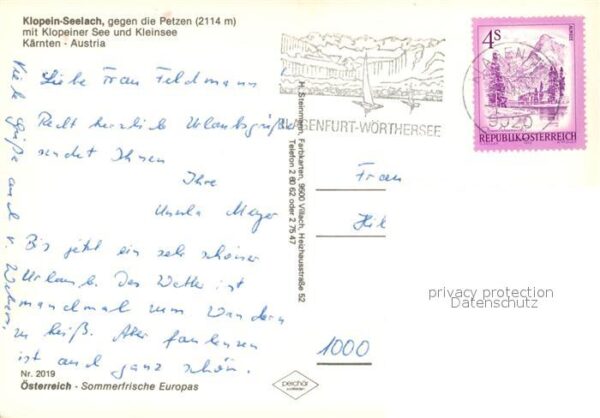 Klopein-Seelach, gegen die Petzen (2114 m)
mit Klopeiner See und Kleinsee
Kärnten - Austria
Liebe Frau Feldmann
Recht herzliche Urlaubsgrüße
sendet Ihnen
Ihre
Ursula Meyer
Bis jetzt ein sehr schöner
Urlaub. Das Wetter ist
manchmal zum Wandern
zu heiß. Aber faulenzen
ist auch ganz schön.
Viele Grüße auch v.
Nr. 2019
Österreich - Sommerfrische Europas
H. Steinmann, Farbkarten, 9500 Villach, Heizhausstraße 52
Telefon 2 80 62 oder 2 75 47
perchar
GENFURT-WÖRTHERSEE
4S
REPUBLIK ÖSTERREICH
9020
Frau
Hil
1000
privacy protection
Datenschutz